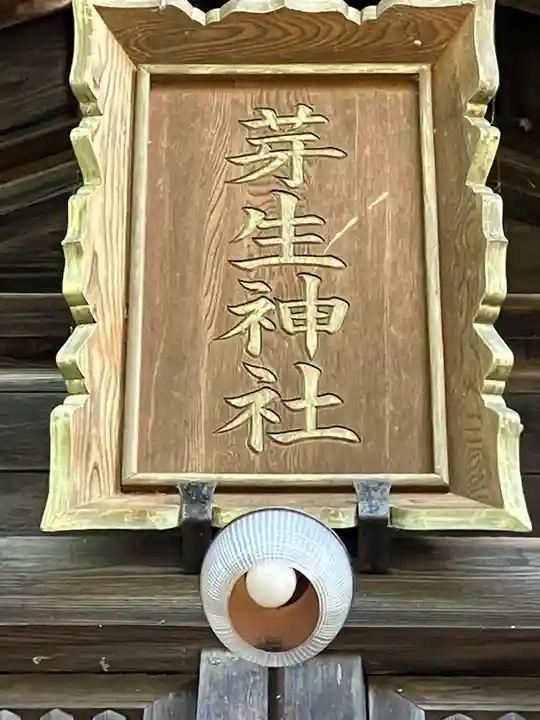 芽生神社